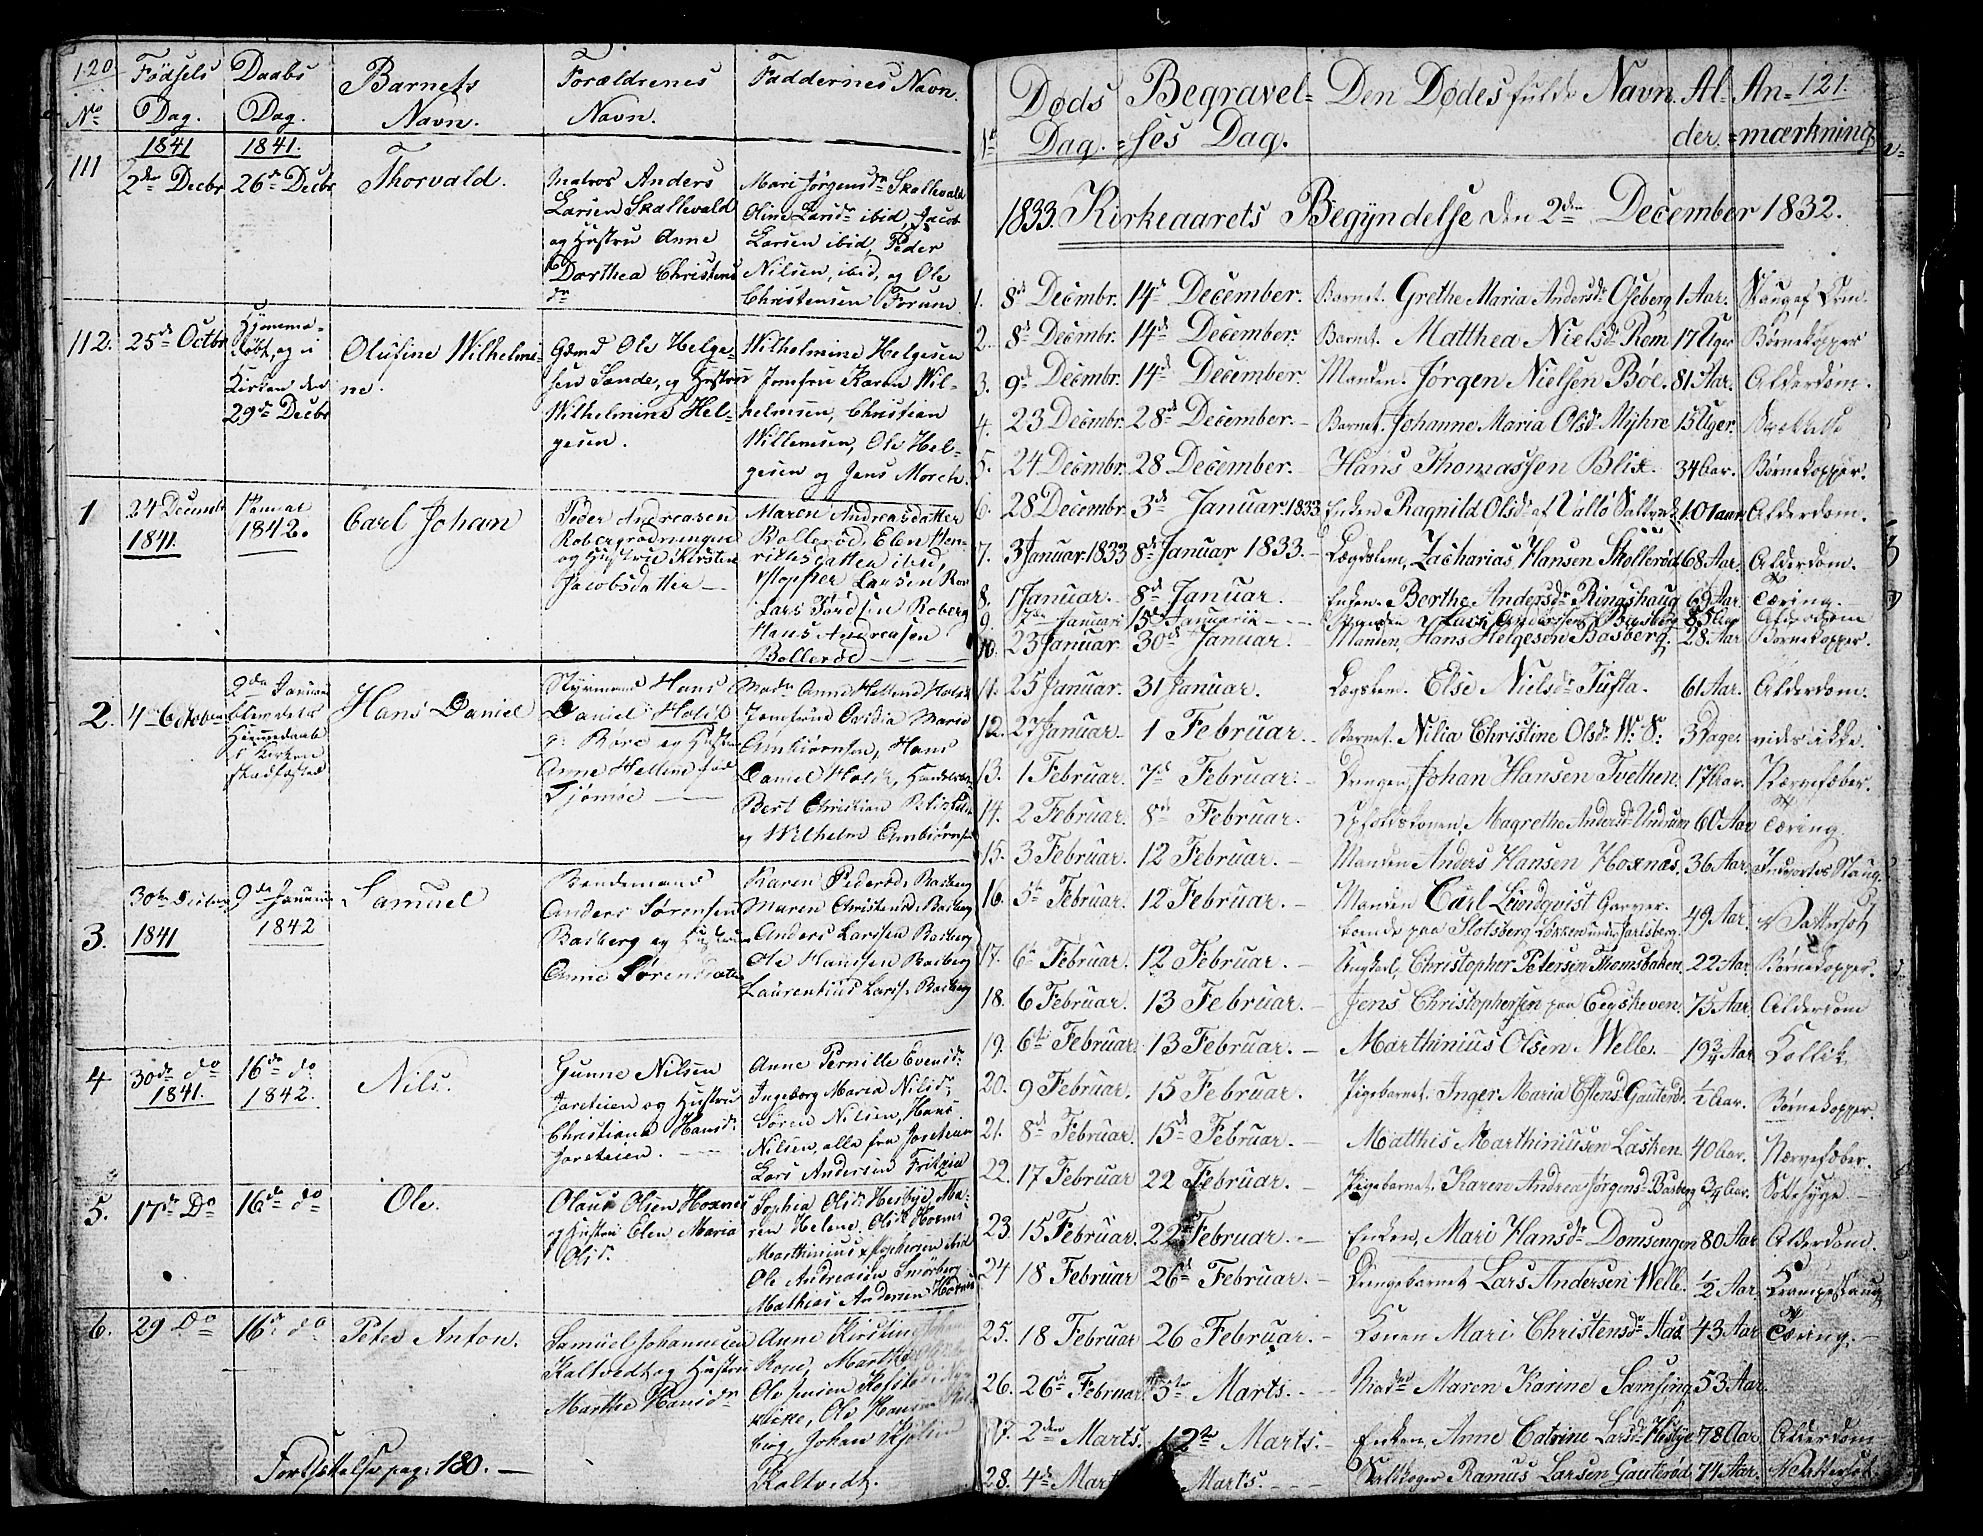 120. Fødsels Daabs Barnets Forældrenes Faddernes Navn.
No Dag. Dag. Navn. Navn.
1841 1841.
111 2den Decbr 26de Decbr Thorvald.
Matros Anders
Larsen Skallevald
og Hustru Anne
Dorthea Christens
dr
Mari Jørgensdr Skallevald
Oline Larsdr ibid, Jacob
Larsen ibid, Peder
Nilsen, ibid, og Ole
Christensen Forum
112. 25de Octbr
Hjemme-
døbt, og i
Kirken den
29de Decbr
Olufine Wilhelmi-
ne.
Gmd Ole Helge-
sen Sande, og Hustru
Wilhelmine Hel-
gesen.
Wilhelmine Helgesen
Jomfru Karen Wil-
helmsen, Christian
Willemsen, Ole Hel-
gesen og Jens Morch.
1 24 Decembr
1841
Januar
1842.
Carl Johan
Peder Andreasen
Robergrødningen
og Hustrue Kirsten
Jacobsdatter
Maren Andreasdatter
Bollerød, Elen Hen-
riksdatter ibid,
Lars Roberg
Hans Andreasen
Bollerød
2. 4de October
9de Januar
Hjemmedaab
i Kirken
stadfæsted
Hans Daniel
Styrmand Hans
Daniel Holst
Børe og Hustru
Anne Hellene
Tjømøe
Anne Hellene Holst
Jomfrue Marie
Ambiørnsen, Hans
Daniel Holst,
Bert Christian
og Wilhelm Ambiørnsen
3. 30te
1841
9de Januar
1842
Samuel
Bondemand
Anders Sørensen
Basberg og Hustru
Anne Sørensdatter
Karen Pedersd. Basberg
Maren Christensd. Basberg
Anders Larssen Basberg
Ole Hanssen Basberg
Laurentius Larss. Basberg
4 30de do
1841.
16de do
1842.
Nils.
Gunne Nilsen
Jareteien og Hustru
Christiane Hansdr
Jareteien.
Anne Pernille Evensdr
Ingeborg Maria Nilsdr
Søren Nilsen, Hans
Nilsen, alle fra Jareteien
Lars Andersen
5. 17de Do 16de do Ole.
Olaus Olsen Hoxnes
og Hustru Elen Maria
Olsdr.
Sophia Olsdr Ma-
ren Helene, Olsdr Hoxnes
Marthinius ibid
Ole Andreasen Smørberg
Mathias Andersen Hoxnes
6. 29 Do 16de do Peter Anton.
Samuel Johannesen
Kaltvedt og Hustru
Marthe Hansdr
Anne Kirstine
Marthe
Ole Jensen
Ole Hansen
Johan
Kaltvedt.
Fortsættelse pag: 180.
No Døds Dag. Begravel=ses Dag. Den Dødes fulde Navn. Al-der. An=mærkning 121.
1833. Kirkeaarets Begyndelse den 2den December 1832.
1. 8de Decmbr. 14de December. Barnet. Grethe Maria Andersdr Oseberg 1 Aar.
2. 8de Decmbr. 14de December. Barnet. Matthea Nielsdr Rem 17 Uger Børnekopper
3. 9de Decmbr. 14de December. Manden. Jørgen Nielsen Bøe. 81 Aar. Alderdom.
4. 23 Decmbr. 28de December. Barnet. Johanne Maria Olsdr Myhre 15 Uger.
5. 24 Decmbr. 28 December. Hans Thomassen Blix. 34 Aar. Børnekopper.
6. 28 Decmbr. 3de Januar 1833 Enken Ragnild Olsdr af Vallø Saltværk 101 aar Alderdom.
7. 3 Januar 1833 8de Januar 1833. Lægdslem, Zacharias Hansen Skollerød 68 Aar. Alderdom.
8. 1 Januar. 8de Januar. Enken. Berthe Andersdr Ringshaug 69 Aar. Tæring.
9. 7de Januar 15de Januarii Lars Anderssen Basberg 85 Aar Alderdom
10. 23 Januar. 30de Januar. Manden, Hans Helgesen Basberg. 28 Aar Børnekopper.
11. 25 Januar. 31 Januar. Lægslem. Else Nielsdr Tufta. 61 Aar. Alderdom.
12. 27 Januar 1 Februar. Barnet. Nilia Christine Olsdr W: S: 3 Dager. vides ikke.
13. 1 Februar. 7de Februar. Drengen, Johan Hansen Tvethen. 17 Aar. Nærvefæber.
14. 2 Februar. 8de Februar. Magrethe Andersdr Undrum 60 Aar Tæring.
15. 3 Februar. 12 Februar. Manden Anders Hansen Hoxnæs. 36 Aar.
16. 5te Februar. 12 Februar. Manden Carl Lundqvist Garver.
paa Slotsberg Løkken under Jarlsberg. 49 Aar.
17. 6te Februar. 12 Februar. Ungkarl, Christopher Petersen Thomsbaken. 22 Aar Børnekopper.
18. 6 Februar. 13 Februar. Jens Christophersen paa Eegskeven. 75 Aar. Alderdom
19. 6te Februar. 13 Februar. Marthinius Olsen Welle. 19¾ Aar. Kollik.
20. 9 Februar. 15 Februar. Pigebarnet. Inger Maria Gauterød. ½ Aar. Børnekopper.
21. 8de Februar. 15de Februar. Matthis Marthiniusen Lasken 40 Aar. Nærvefæber.
22. 17 Februar 22 Februar. Pigebarnet. Karen Andrea Jørgensdr Basberg ¾ Aar. Sottesyge
23. 15 Februar. 22de Februar. Enken, Mari Hansdr Domsengen 80 Aar Alderdom.
24 18 Februar 26de Februar. Drengebarnet Lars Andersen Welle. ½ Aar.
25. 18 Februar 26 Februar. Konen Mari Christensdr Aas. 43 Aar Tæring.
26. 26de Februar 5te Marts. Maren Karine Samsing 53 Aar.
27. 2den Marts. 12te Marts. Enken, Anne Catrine Larsdr 78 Aar Alderdom
28. 4de Marts Marts. Rasmus Larsen Gauterød 74 Aar.